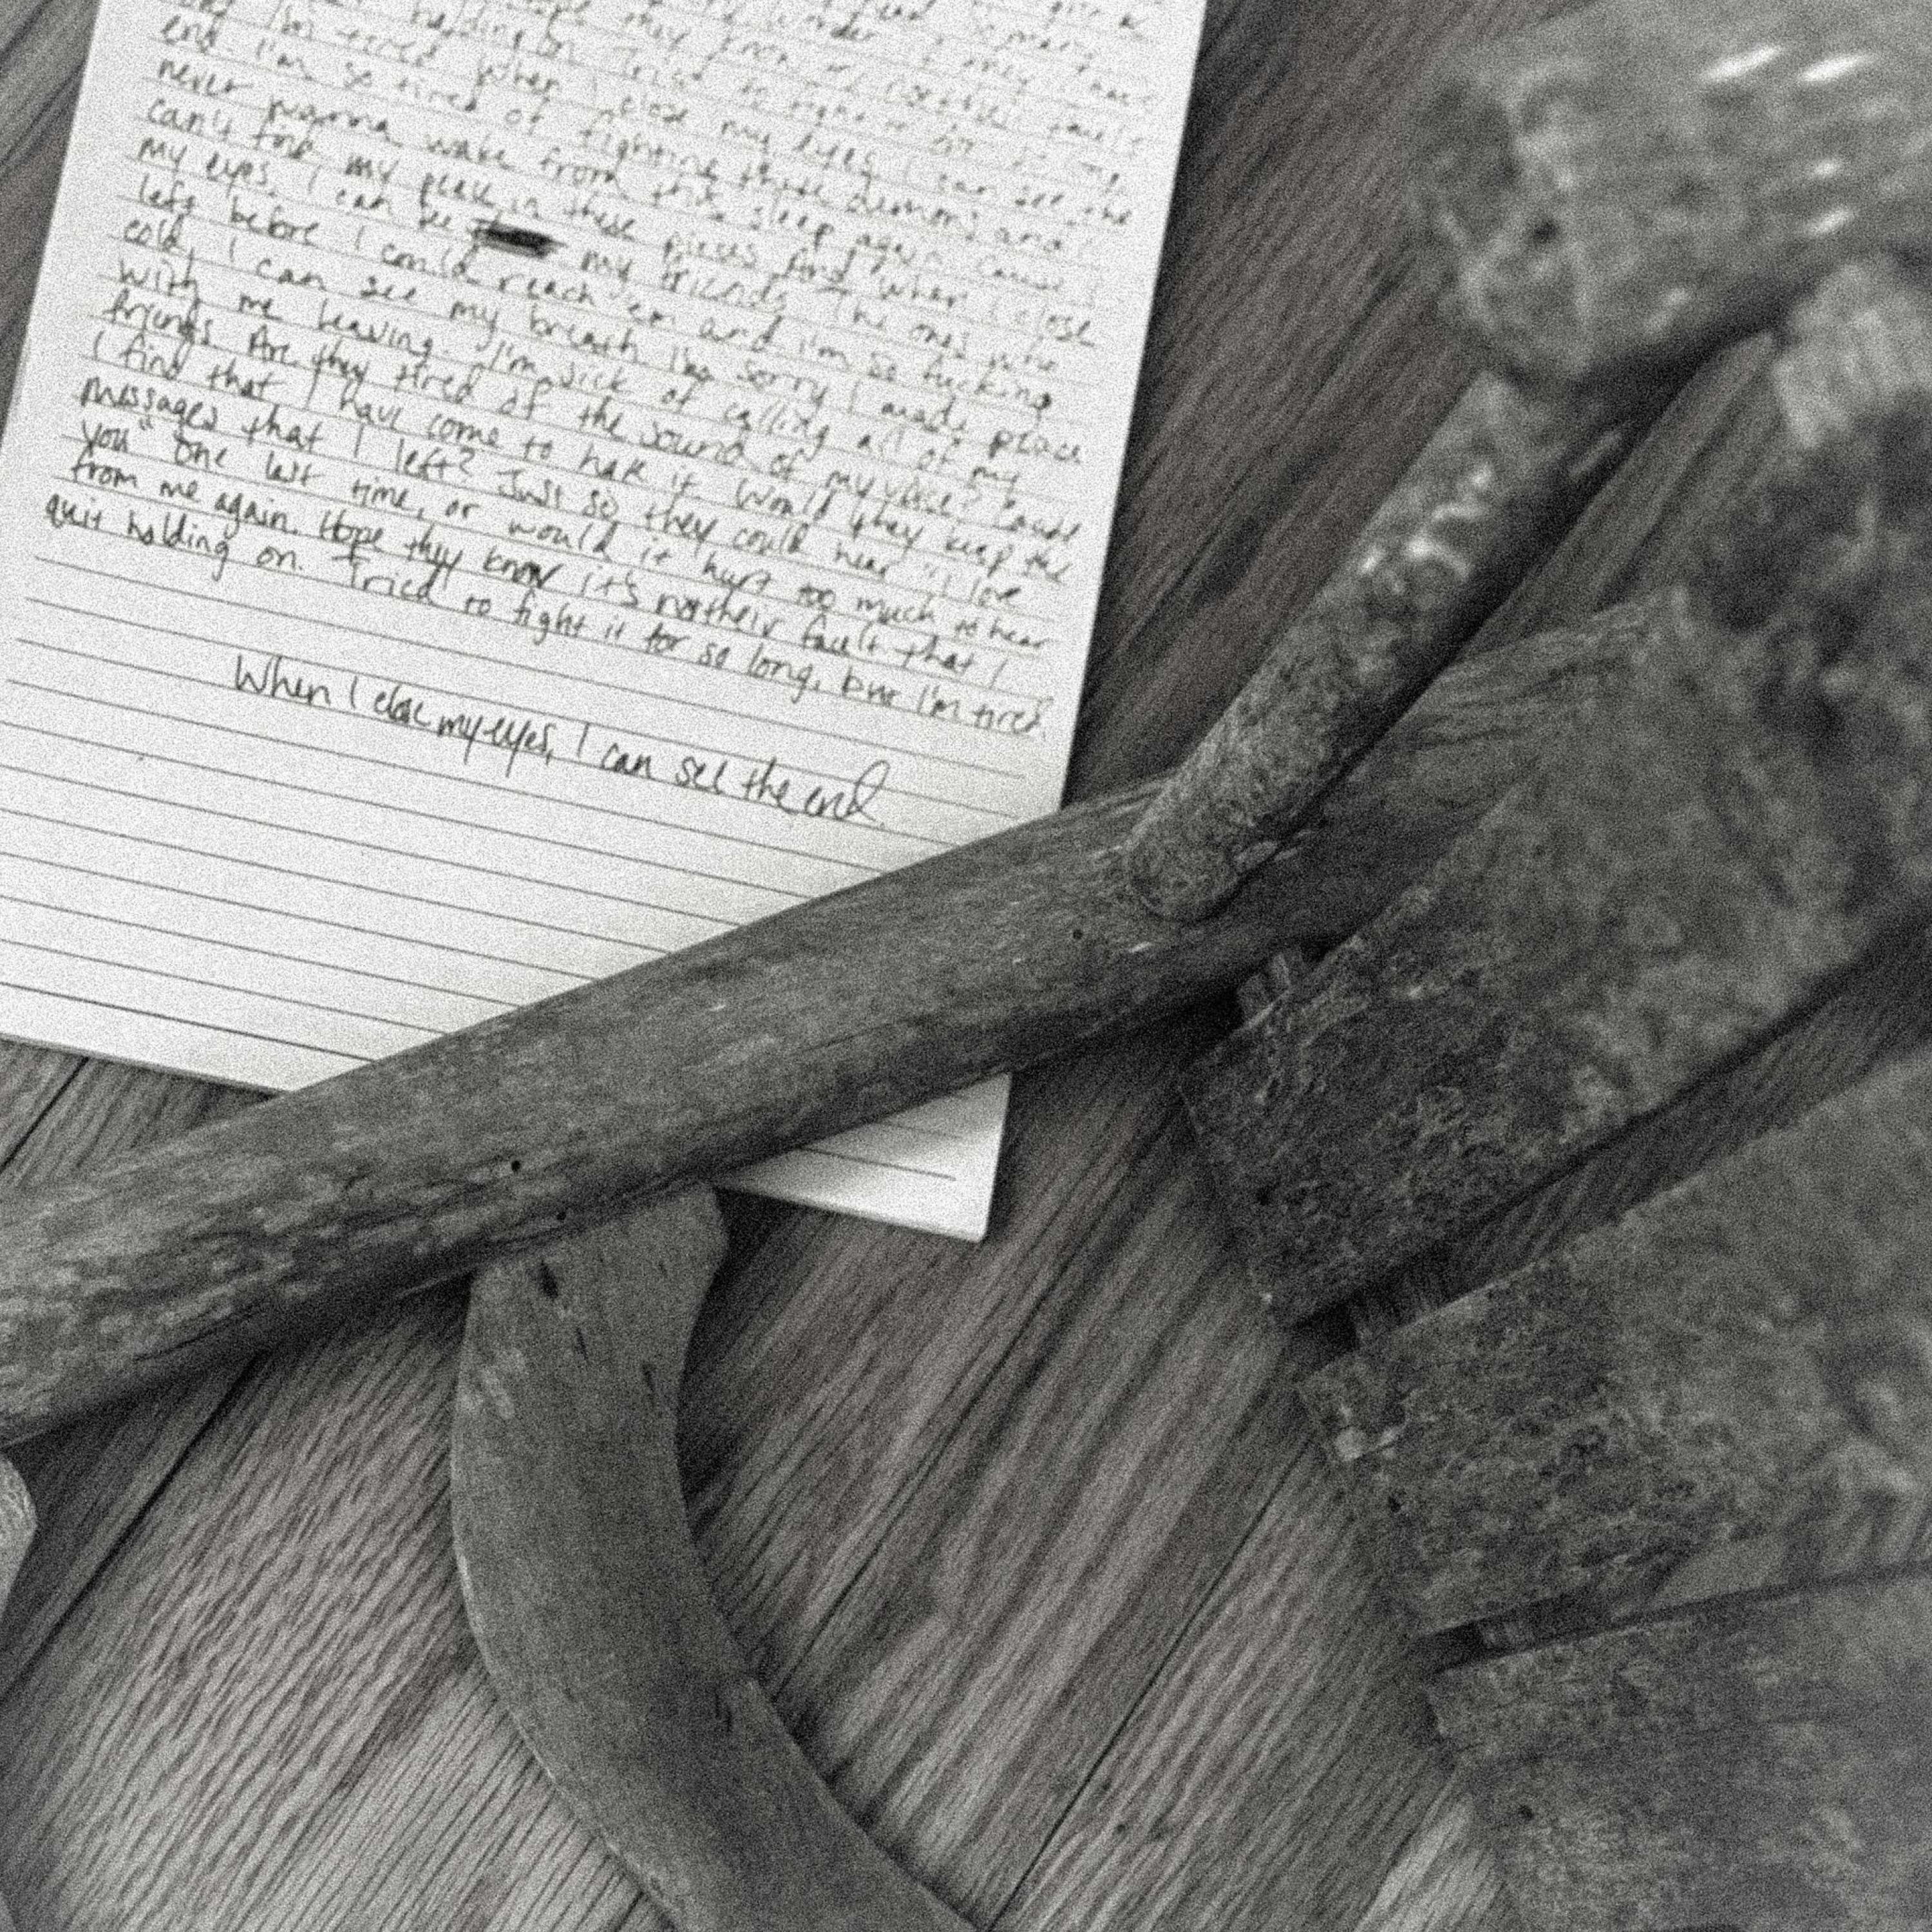 holding on. Tried to fight it for so long,
I'm tired. When I close my eyes, I can see the
end. I'm so tired of fighting these demons and I
never wanna wake from this sleep again cause I
can't find my place in these pieces. And when I close
my eyes, I can see my friends. The ones who
left before I could reach 'em and I'm so fucking
cold, I can see my breath. I'm sorry I made peace
with me leaving. I'm sick of calling all of my
friends. Are they tired of the sound of my voice? Cause
I find that I have come to hate it. Would they keep the
messages that I left? Just so they could hear "I love
you" one last time, or would it hurt too much to hear
from me again. Hope they know it's not their fault that I
quit holding on. Tried to fight it for so long, but I'm tired.
When I close my eyes, I can see the end